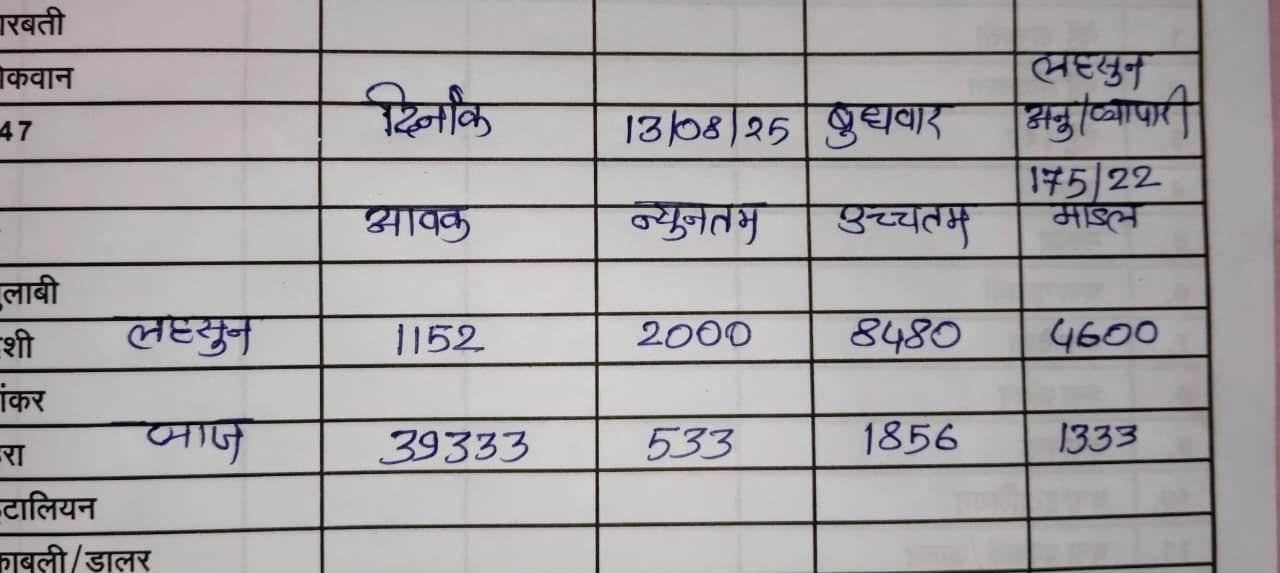 रबती
ोकवान लहसुन
47 दिनाँक 13/08/25 बुधवार अनु/व्यापारी
175/22
आवक न्युनतम उच्चतम माडल
ुलाबी
शी लहसुन 1152 2000 8480 4600
ंकर
रा प्याज 39333 533 1856 1333
टालियन
काबली/डालर